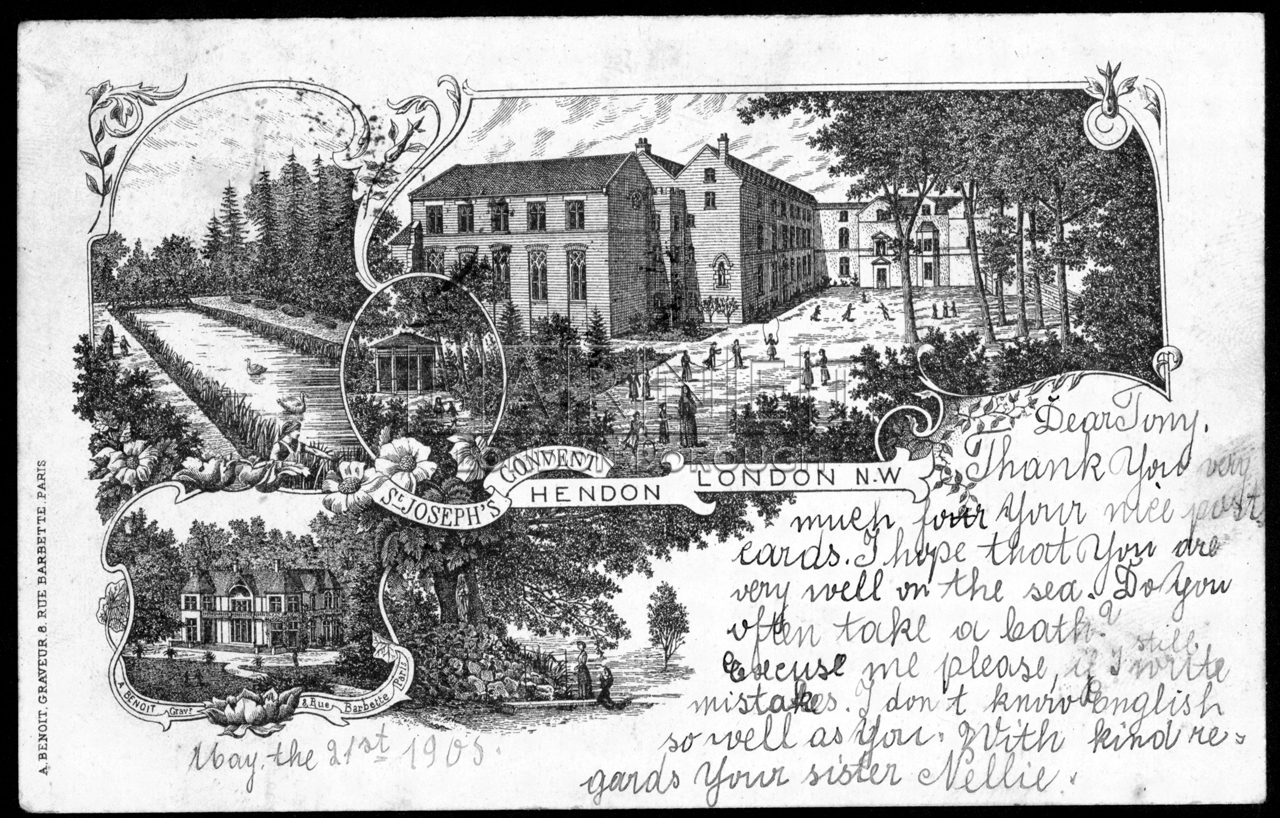 A. BENOIT, GRAVEUR, 8, RUE BARBETTE, PARIS
ST JOSEPH'S CONVENT
HENDON LONDON N.W
A BENOIT, Gravr 8 Rue Barbette Paris
Dear Tony.
Thank You very
much for Your nice post
cards. I hope that You are
very well on the sea. Do You
often take a bath?
Excuse me please, if I still write
mistakes. I don't know English
so well as You. With kind re=
gards Your sister Nellie.
May, the 21st 1903.